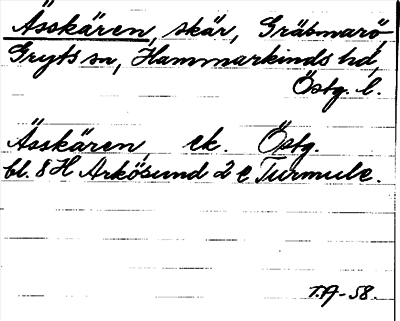 Ässkären, skär, Gräbmarö,
Gryts sn, Hammarkinds hd,
Östg. l.
Ässkären, ek. Östg.
bl. 8 H Arkösund 2 c Turmule.
T.A-58.